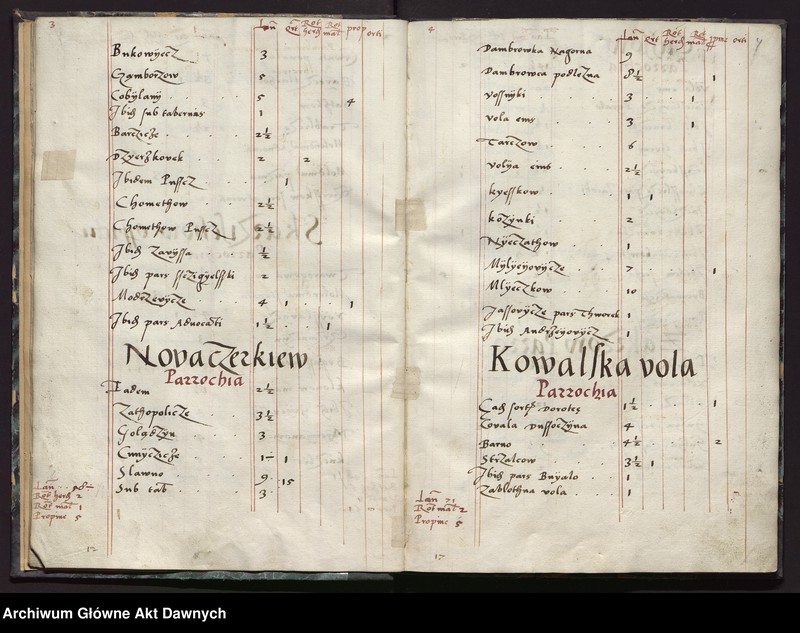 3
Lan ort Rot herd Rot mal prop orti
Bukowyecz 3
Czamborzow 5
Cobylany 5 4
Ibid sub tabernas 1
Barczicze 2½
Dzyerzkovek 2 2
Ibidem Pusscz 1
Chomethow 2½
Chomethow Pusscz 2½
Ibid Zavyssa ½
Ibid pars Sseczigyelsski 2
Modrzevycze 4 1 1
Ibid pars Advocati 1½ 1
Novaczerkiew
Parrochia
Eadem 2½
Zathopolicze 3½
Golądzyn 3
Cunyczicze 1 1
Slawno 9 15
Sub tab 3
Lan
Rot herd 2
Rot mal 1
Propine 5
12
4
Lan ort Rot herd Rot mal pine orti
Dambrowka Nagorna 9
Dambrowca podlezna 8½ 1
Vossnyki 3 1
Vola ems 3 1
Tarczow 6
Volya ems 2½
Kyesskow 1 1
Kozynki 2
Nyeczathow 1
Mylyeyovycze 7 1
Mlyeczkow 10
Jassovycze pars Thworek 1
Ibid Andrzeyovycz 1
Kowalska vola
Parrochia
Cad sort Dorotes 1½ 1
Covala Dussoczyna 4
Barno 4½ 2
Strzalcow 3½ 1
Ibid pars Bnyalo 1
Zablothna vola 1
Lan 71
Rot mal 2
Propine 5
17
Archiwum Główne Akt Dawnych